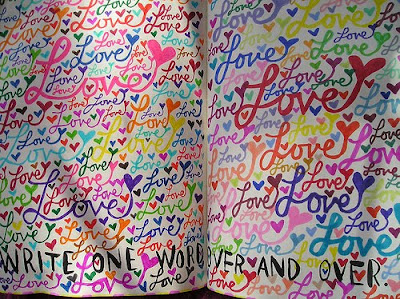 Love Love Love Love Love Love Love Love
Love Love Love Love Love Love Love
Love Love Love Love Love Love
Love Love Love Love Love Love Love
Love Love Love Love Love Love
Love Love Love Love Love Love Love
Love Love Love Love Love Love
Love Love Love Love Love Love
Love Love Love Love Love Love
WRITE ONE WORD OVER AND OVER.
Love Love Love Love Love